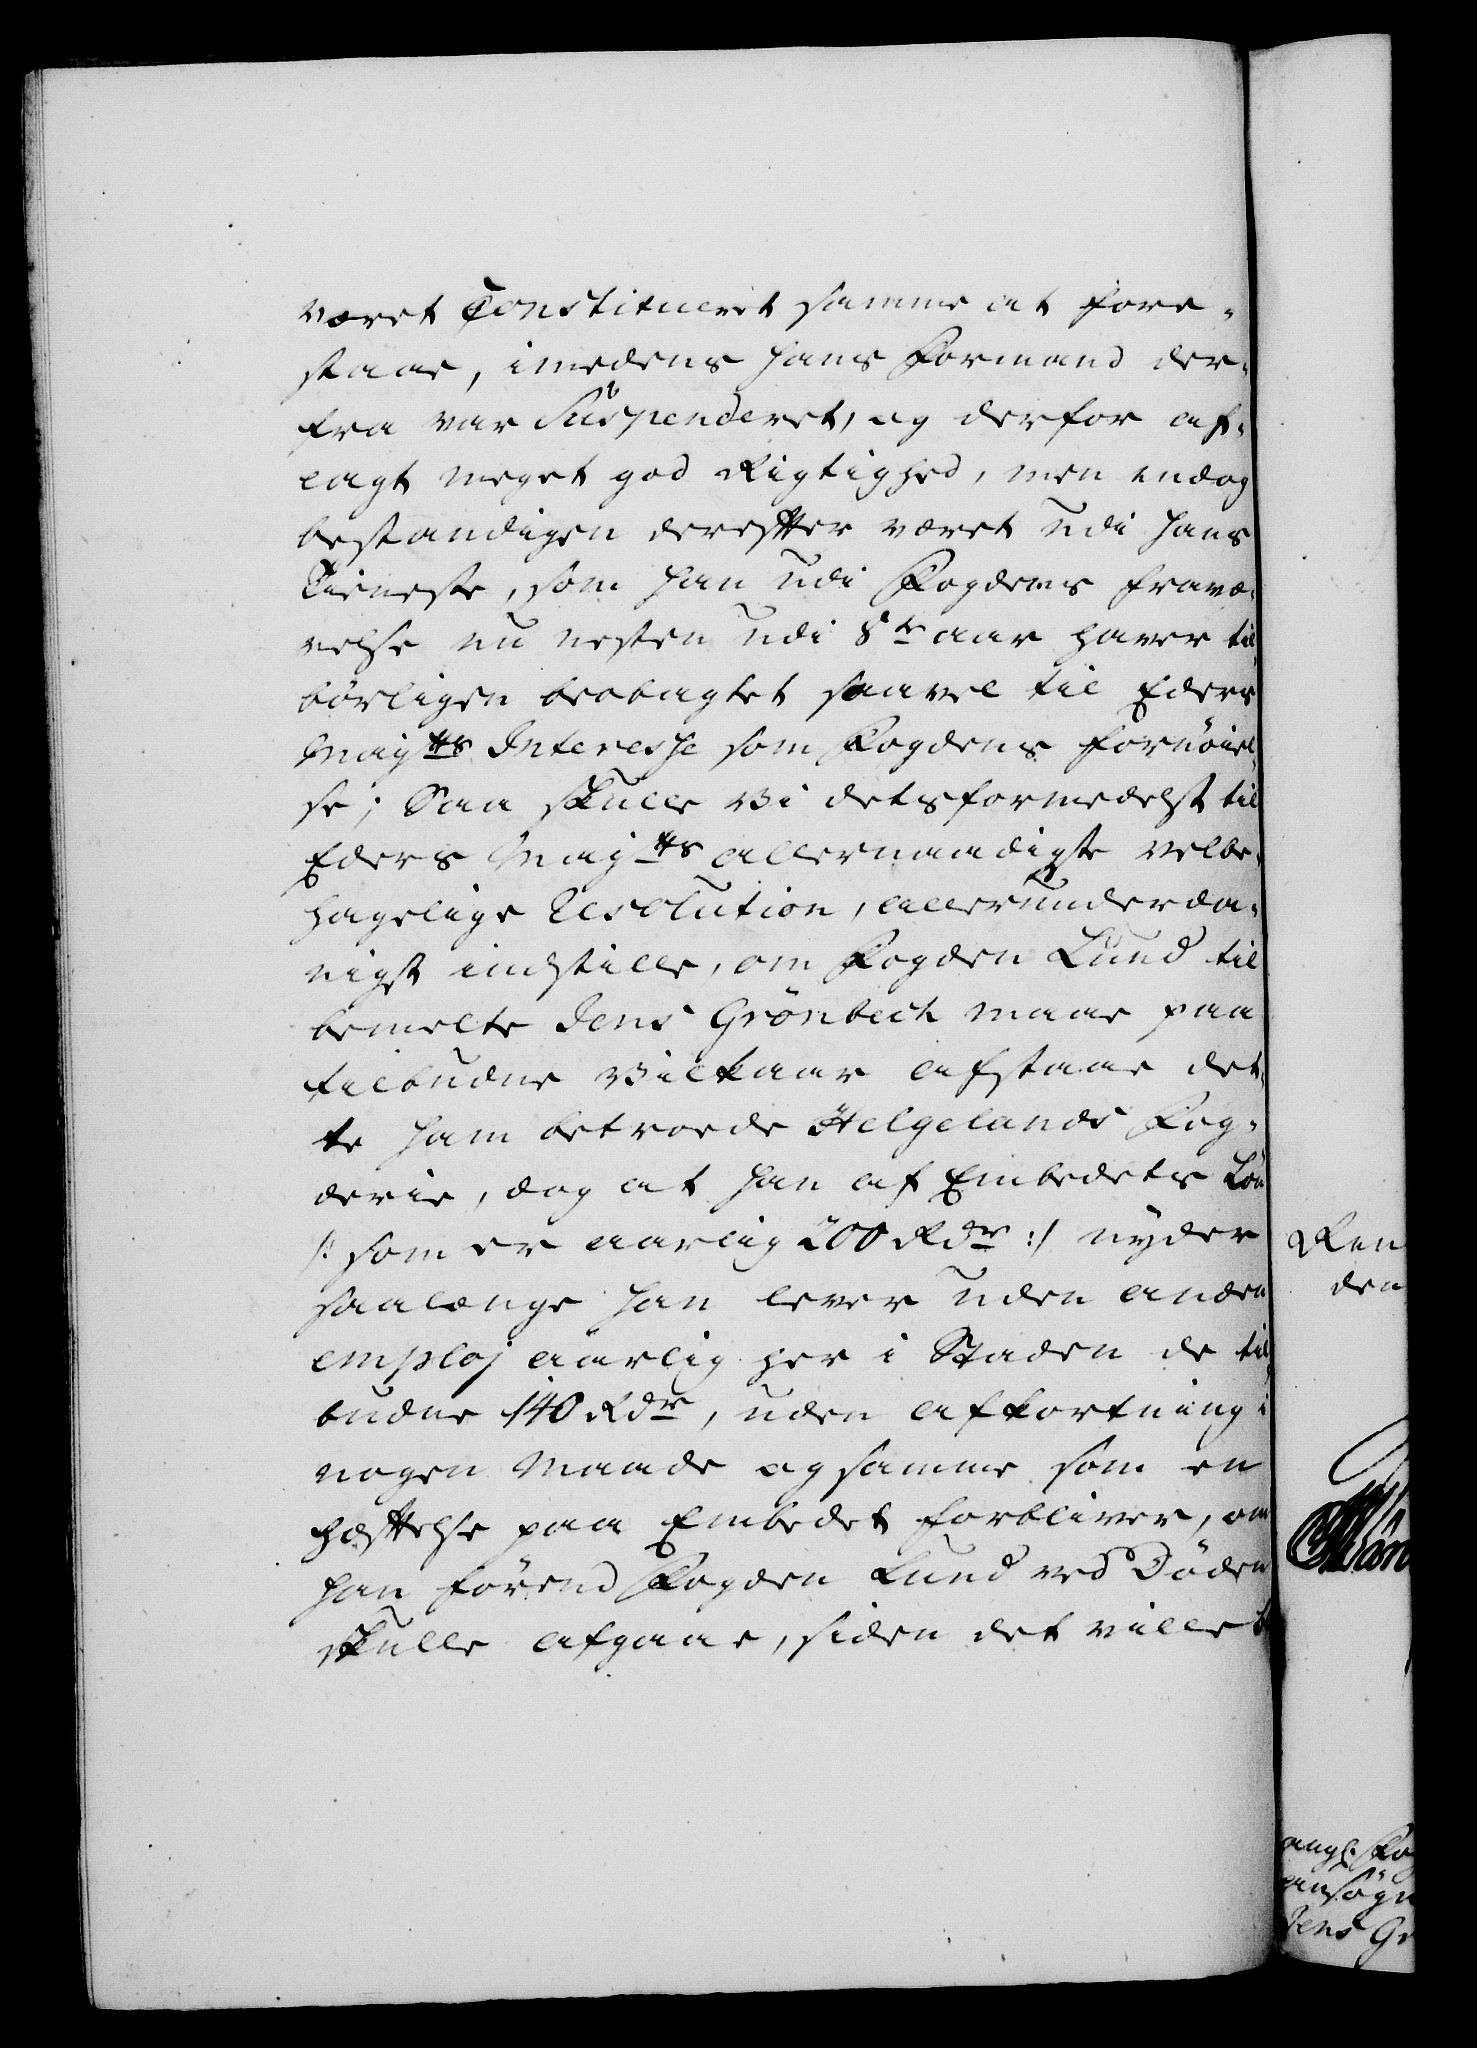 været Constitueret samme at fore-
staae, imedens hans Formand der-
fra var Suspenderet, og derfor af-
lagt meget god Rigtighed, men endog
bestandigen derefter været udi hans
Tieneste, som han udi Fogdens fravæ-
relse nu nesten udi 8te aar haver til
børligen beobagtet saavel til Eders
Mayts Interesse som Fogdens fornøiel-
se; Saa skulle Vi detsformedelst til
Eders Mayts allernaadigste velbe-
hagelige Resolution, allerunderda-
nigst indstille, om Fogden Lund til
bemelte Jens Grønbech maae paa
tilbudne Vilkaar afstaae det-
te ham betroede Helgelands Fog-
derie, dog at han af Embedets Løn
/: som er aarlig 200 Rdr :/ nyder
saalænge han lever uden anden
emploj aarlig her i Staden de til
budne 140 Rdr, uden afkortning i
nogen Maade og samme som en
hæftelse paa Embedet forbliver, om
han førend Fogden Lund ved Døden
skulle afgaae, siden det ville
Ren
den
Jens Gr